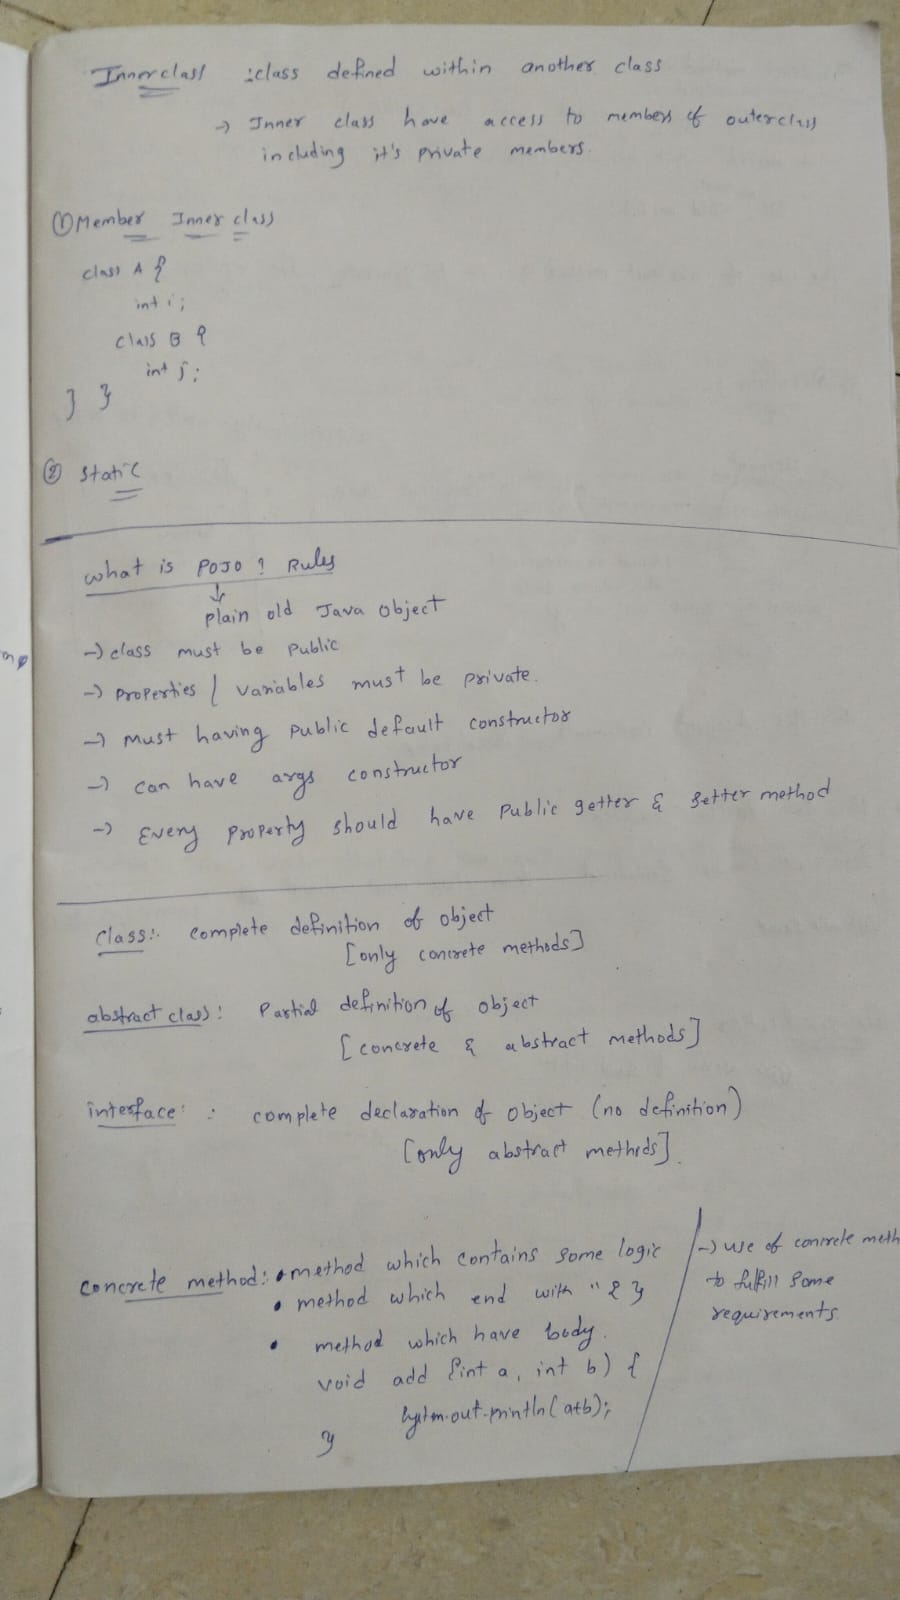 Innerclass :class defined within another class
→ Inner class have access to members of outerclass
including it's private members.
① Member Inner class
class A {
int i;
class B {
int j;
} }
② static
what is POJO ? Rules
↓
plain old Java object
→ class must be public
→ properties / variables must be private.
→ must having public default constructor
→ can have args constructor
→ Every property should have public getter & setter method
class:- complete definition of object
[only concrete methods]
abstract class : Partial definition of object
[concrete & abstract methods]
interface : complete declaration of object (no definition)
[only abstract methods]
concrete method: • method which contains some logic
• method which end with " { }
• method which have body.
void add (int a, int b) {
System.out.println(a+b);
}
→ use of concrete meth
to fulfill some
requirements.